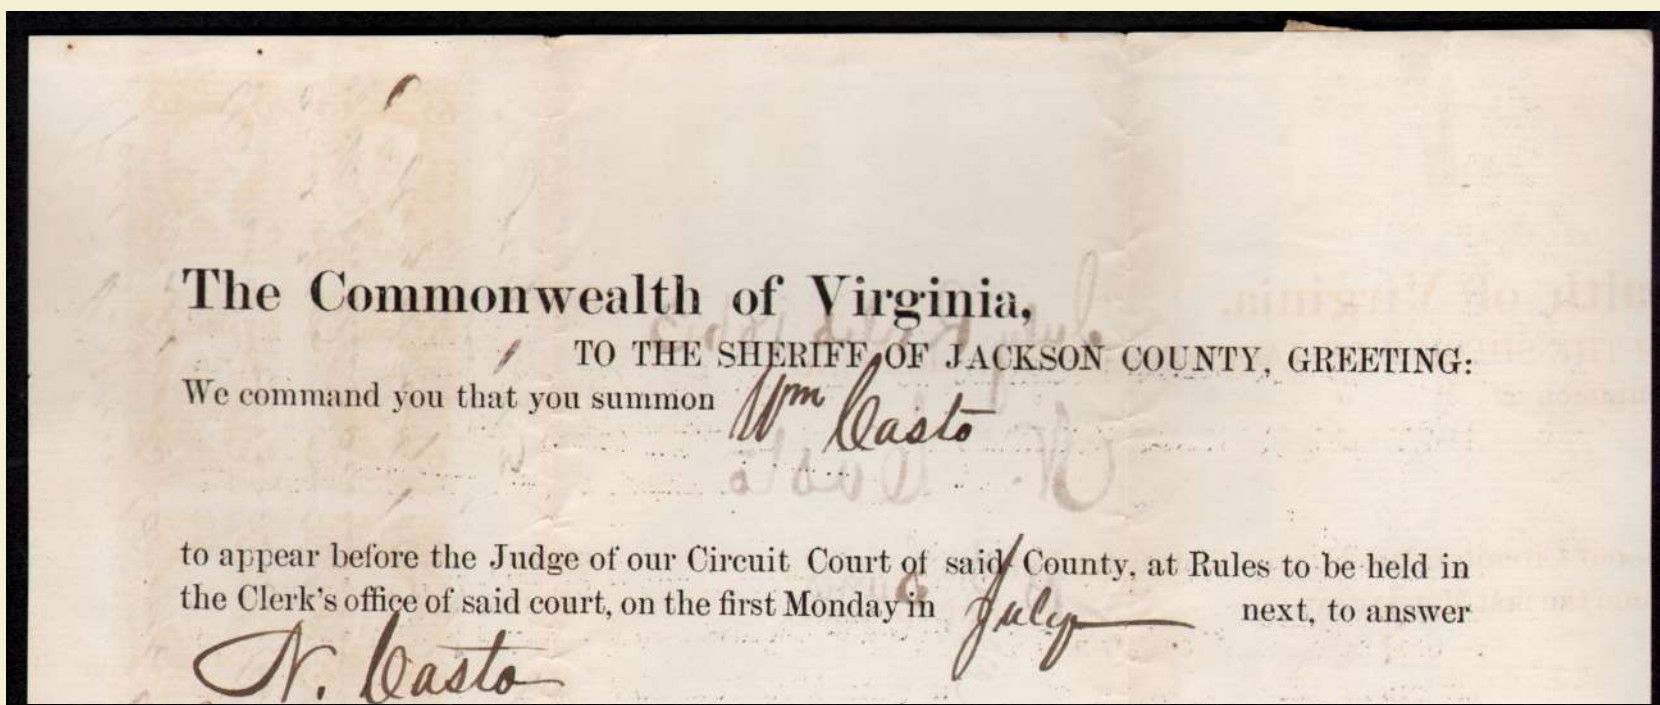 The Commonwealth of Virginia,
TO THE SHERIFF OF JACKSON COUNTY, GREETING:
We command you that you summon Wm Casto
to appear before the Judge of our Circuit Court of said County, at Rules to be held in
the Clerk's office of said court, on the first Monday in July next, to answer
N. Casto